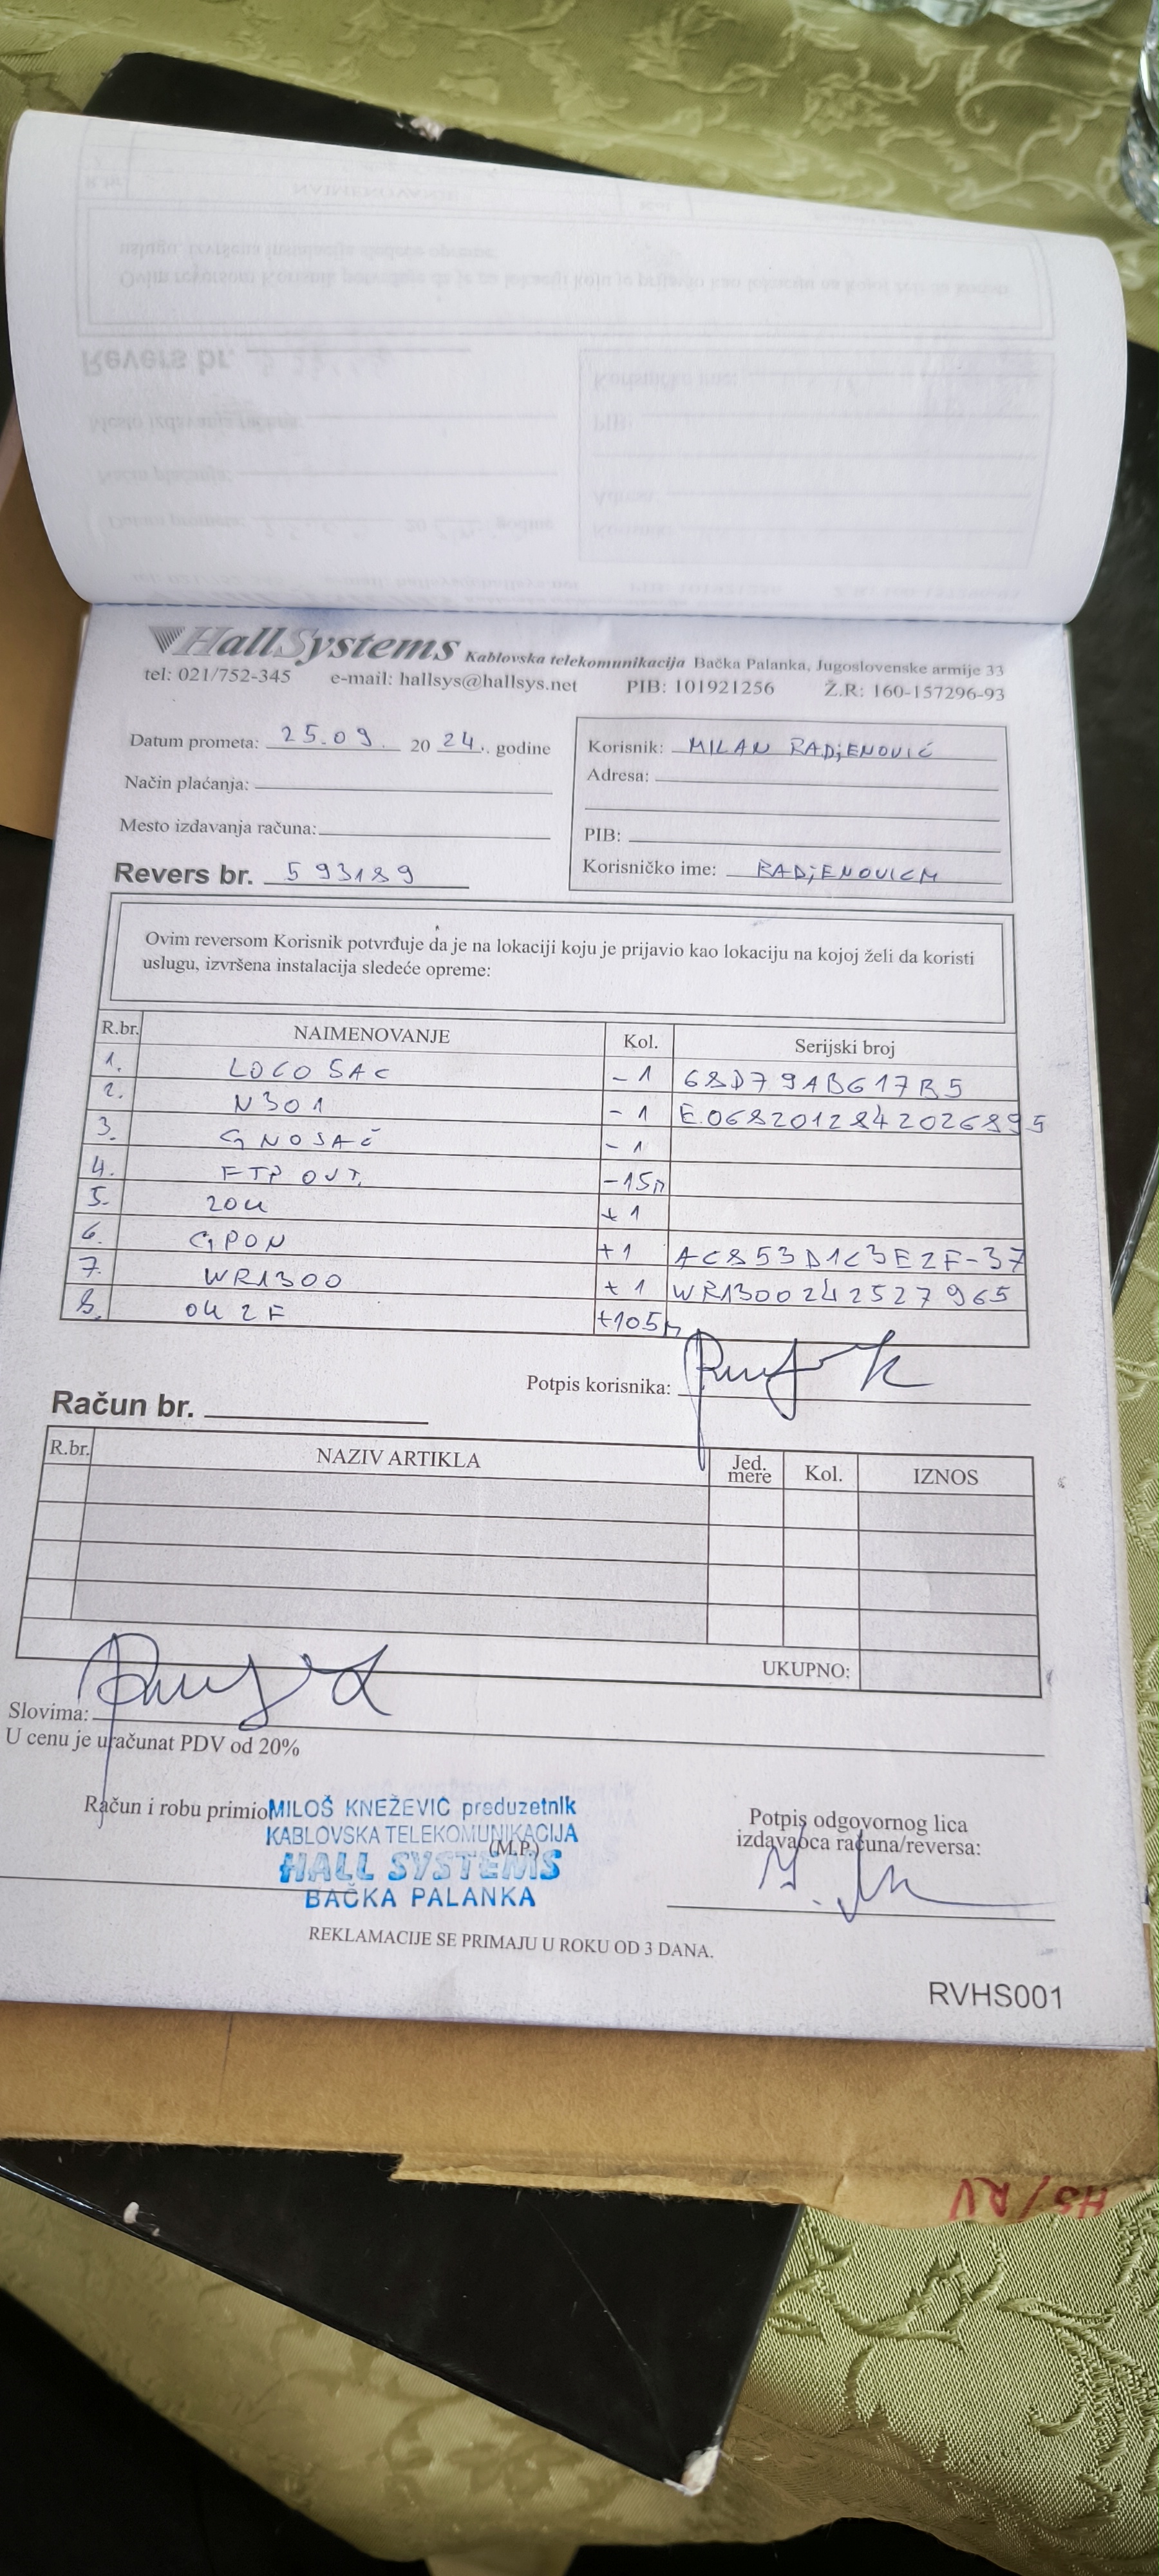 HallSystems Kablovska telekomunikacija Bačka Palanka, Jugoslovenske armije 33
tel: 021/752-345 e-mail: hallsys@hallsys.net PIB: 101921256 Ž.R: 160-157296-93
Datum prometa: 25.09. 2024. godine
Način plaćanja:
Mesto izdavanja računa:
Revers br. 593189
Korisnik: MILAN RADjENOVIĆ
Adresa:
PIB:
Korisničko ime: RADjENOVICM
Ovim reversom Korisnik potvrđuje da je na lokaciji koju je prijavio kao lokaciju na kojoj želi da koristi
uslugu, izvršena instalacija sledeće opreme:
R.br. NAIMENOVANJE Kol. Serijski broj
1. LOCO 5AC -1 68D79AB617B5
2. N301 -1 E0682012842026895
3. G NOSAČ -1
4. FTP OUT. -15m
5. ZOK +1
6. GPON +1 AC853D1C3E2F-37
7. WR1300 +1 WR1300242527965
8. OK 2F +105m
Potpis korisnika:
Račun br.
R.br. NAZIV ARTIKLA Jed. mere Kol. IZNOS
UKUPNO:
Slovima:
U cenu je uračunat PDV od 20%
Račun i robu primio
MILOŠ KNEŽEVIĆ preduzetnik
KABLOVSKA TELEKOMUNIKACIJA
(M.P.)
HALL SYSTEMS
BAČKA PALANKA
Potpis odgovornog lica
izdavaoca računa/reversa:
REKLAMACIJE SE PRIMAJU U ROKU OD 3 DANA.
RVHS001
HS/RV